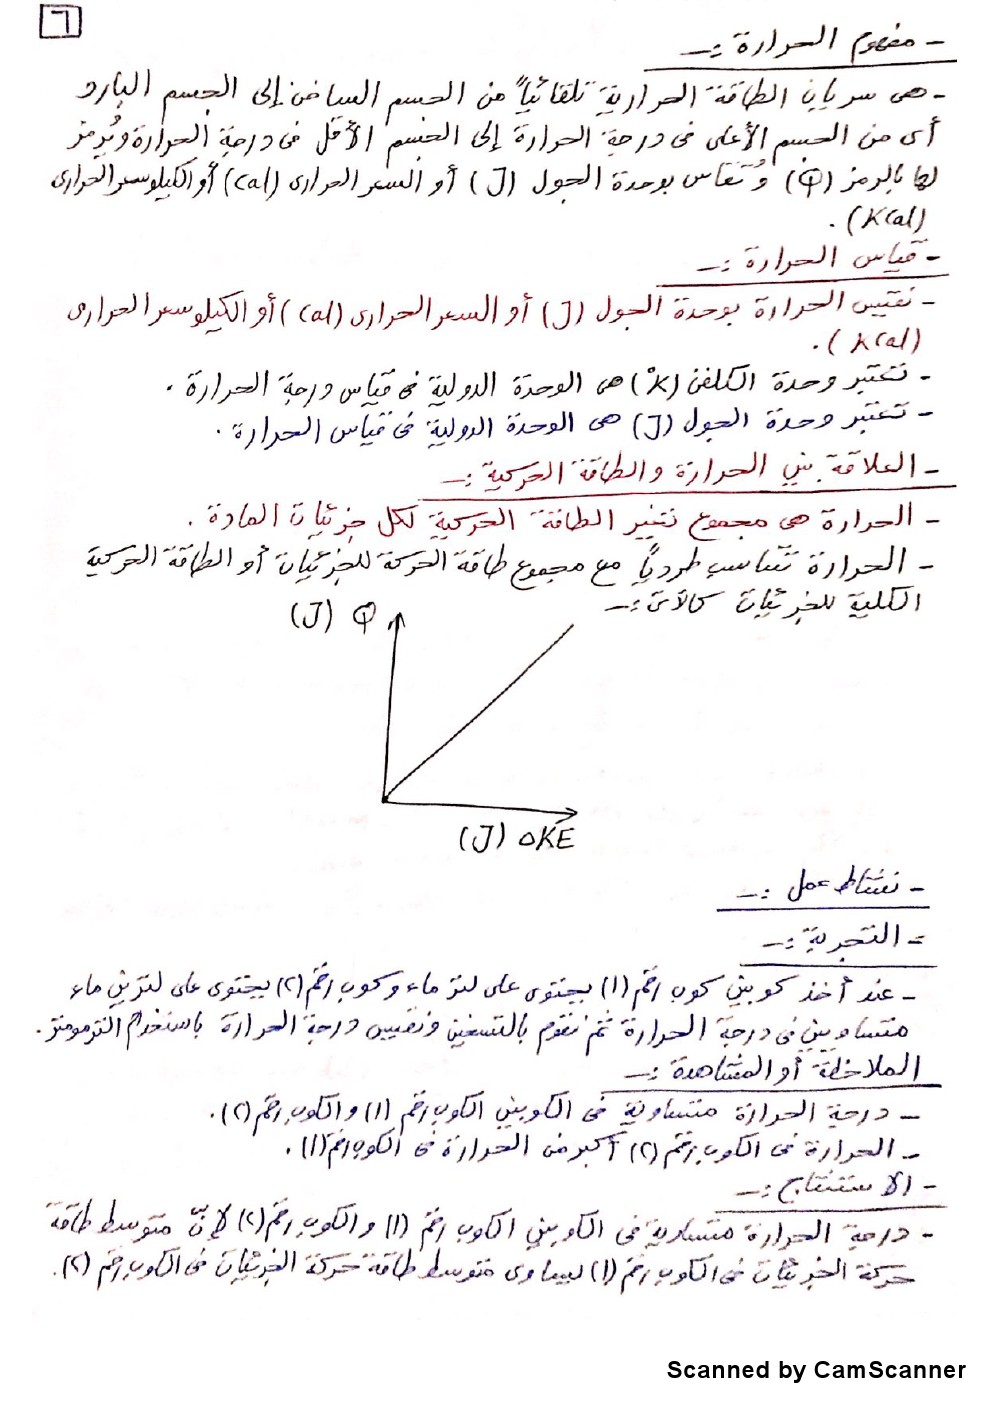 ٦
- مفهوم الحرارة :-
- هى سريان الطاقة الحرارية تلقائياً من الجسم الساخن إلى الجسم البارد
أى من الجسم الأعلى فى درجة الحرارة إلى الجسم الأقل فى درجة الحرارة ويُرمز
لها بالرمز (Q) وتُقاس بوحدة الجول (J) أو السعر الحرارى (cal) أو الكيلوسعر الحرارى
(Kcal) .
- قياس الحرارة :-
- نقيس الحرارة بوحدة الجول (J) أو السعر الحرارى (cal) أو الكيلوسعر الحرارى
(Kcal) .
- تعتبر وحدة الكلفن (K°) هى الوحدة الدولية فى قياس درجة الحرارة .
- تعتبر وحدة الجول (J) هى الوحدة الدولية فى قياس الحرارة .
- العلاقة بين الحرارة والطاقة الحركية :-
- الحرارة هى مجموع تغير الطاقة الحركية لكل جزيئات المادة .
- الحرارة تتناسب طردياً مع مجموع طاقة الحركة للجزيئات أو الطاقة الحركية
الكلية للجزيئات كالآتى :-
(J) Q
(J) ΔKE
- نشاط عملى :-
= التجربة :-
- عند أخذ كوبين كوب رقم (١) يحتوى على لتر ماء وكوب رقم (٢) يحتوى على لترين ماء
متساويين فى درجة الحرارة ثم نقوم بالتسخين ونقيس درجة الحرارة باستخدام الترمومتر .
الملاحظة أو المشاهدة :-
- درجة الحرارة متساوية فى الكوبين الكوب رقم (١) والكوب رقم (٢) .
- الحرارة فى الكوب رقم (٢) أكبر من الحرارة فى الكوب رقم (١) .
- الاستنتاج :-
- درجة الحرارة متساوية فى الكوبين الكوب رقم (١) والكوب رقم (٢) لإنّ متوسط طاقة
حركة الجزيئات فى الكوب رقم (١) يساوى متوسط طاقة حركة الجزيئات فى الكوب رقم (٢) .
Scanned by CamScanner